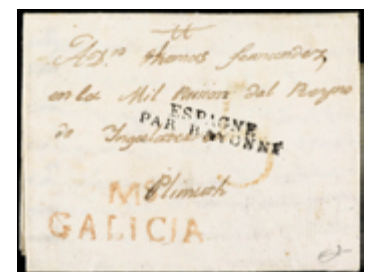 A Dn thomas fernandez
en los Mil Prision del Reyno
de Ynglaterra
ESPAGNE
PAR BAYONNE
Plimout
GALICIA